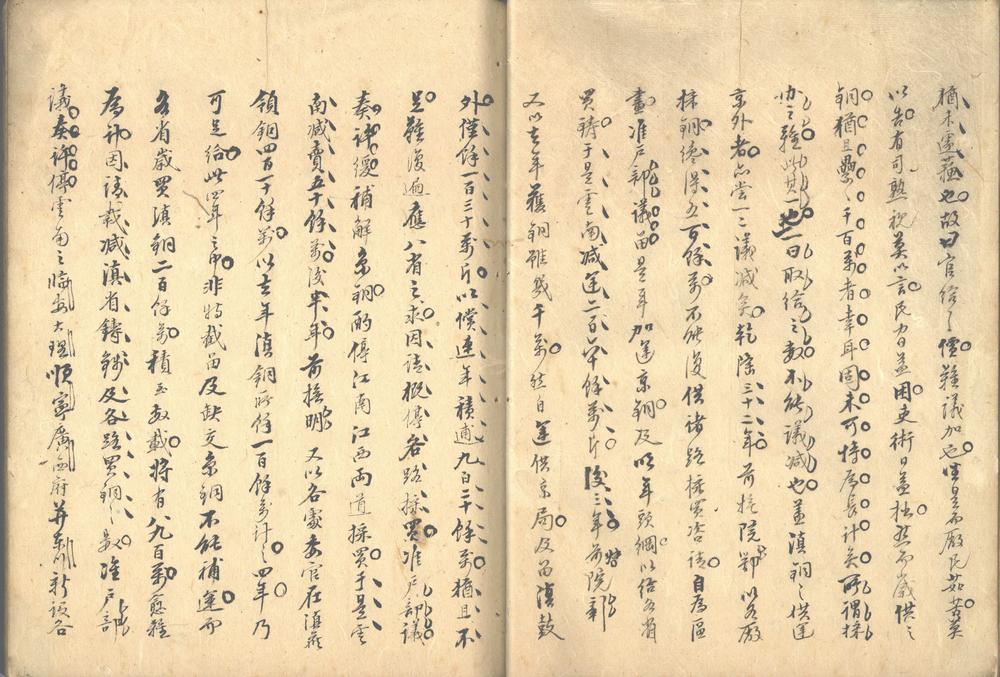 猶未盡蘇也故曰官給之價難議加也生是而廠民茹苦莫
以告有司熟視莫以言民力日益困吏術日益拙然而歲供之
銅猶且纍纍千百萬者幸耳固未可恃為長計矣所謂採
辦之難此其一也一曰取給之數不能議減也蓋滇銅之供運
京外者亦嘗一二議減矣乾隆三十二年前撫院鄂以各廠
採銅纔得五百餘萬不能復供諸路採買咨請自為區
畫准戶部議留是年加運京銅及明年頭綱以給各省
買鑄于是雲南減運二百卅餘萬斤後三年前院
又以去年獲銅雖幾千萬然自運供京局及留滇鼓
外僅餘一百三十萬斤以償連年積逋九百二十餘萬猶且不
足難復遍應八省之求因請概停各路採買准戶部議
奏請緩補解京銅酌停江南江西兩道採買于是雲
南減賣五十餘萬後半年前撫明又以各處委官在滇
領銅四百十餘萬以去年滇銅所餘一百餘萬計之四年乃
可足給此四年之中非特截留及缺交京銅不能補運而
各省歲買滇銅二百餘萬積至數載將有八九百萬愈難
為計因請裁減滇省鑄錢及各路買銅之數准戶部
議奏許停雲南之臨安大理順寧廣西府并東川新設各